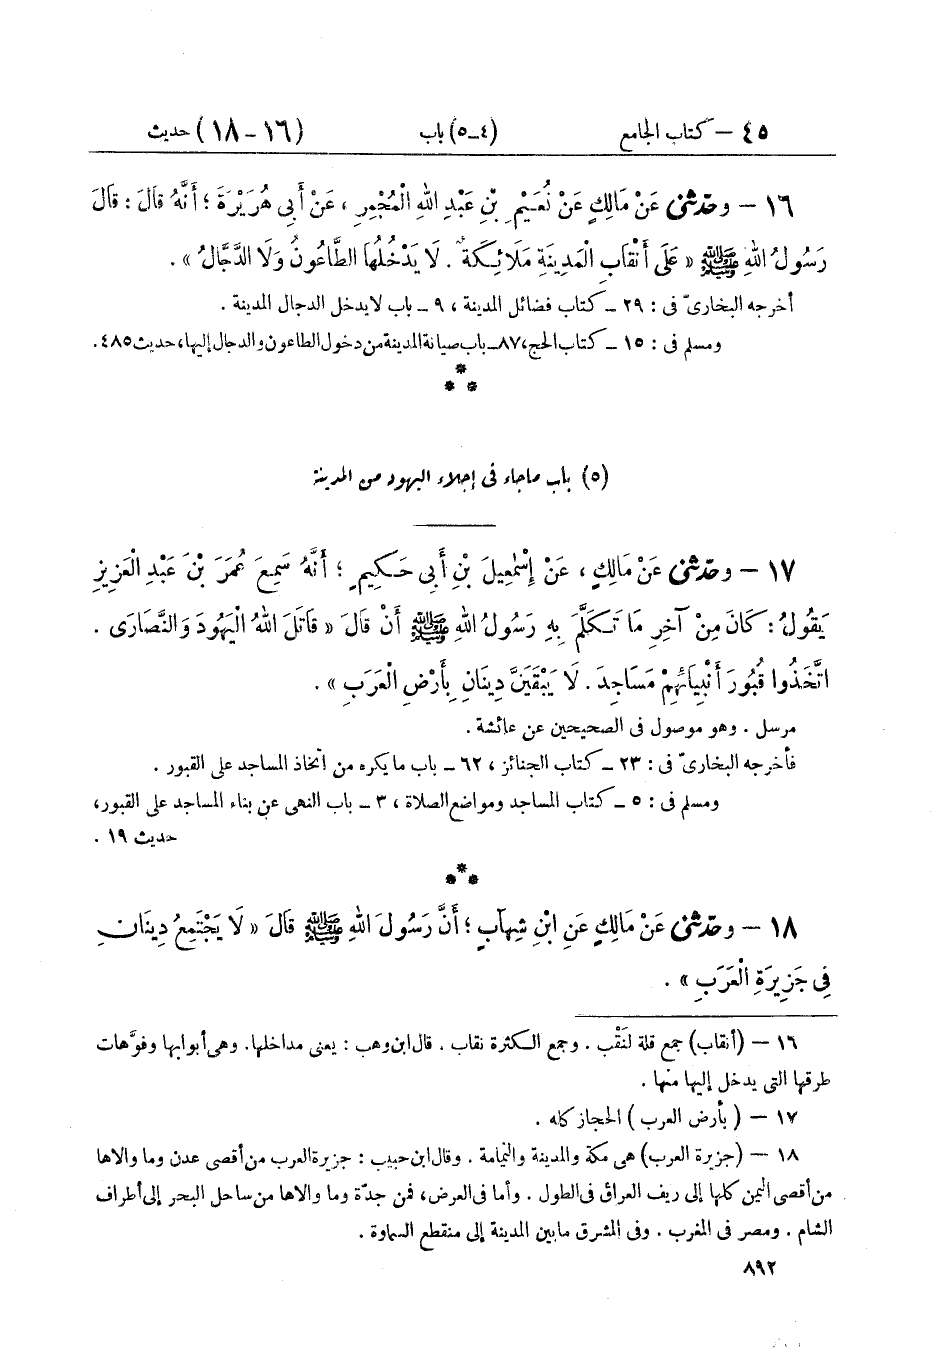 ٤٥ – كتاب الجامع (٤-٥) باب (١٦-١٨) حديث
١٦ – وحدّثنى عَنْ مَالِكٍ عَنْ نُعَيْمِ بْنِ عَبْدِ اللهِ الْمُجْمِرِ ، عَنْ أَبِي هُرَيْرَةَ ؛ أَنَّهُ قَالَ : قَالَ
رَسُولُ اللهِ ﷺ « عَلَى أَنْقَابِ الْمَدِينَةِ مَلَائِكَةٌ . لَا يَدْخُلُهَا الطَّاعُونُ وَلَا الدَّجَّالُ » .
أخرجه البخارىّ فى : ٢٩ ـ كتاب فضائل المدينة ، ٩ ـ باب لا يدخل الدجال المدينة .
ومسلم فى : ١٥ ـ كتاب الحج، ٨٧ـ باب صيانة المدينة من دخول الطاعون والدجال إليها، حديث ٤٨٥ .
*
* *
(٥) باب ماجاء فى إجلاء اليهود من المدينة
١٧ – وحدّثنى عَنْ مَالِكٍ ، عَنْ إِسْمٰعِيلَ بْنِ أَبِي حَكِيمٍ ؛ أَنَّهُ سَمِعَ عُمَرَ بْنَ عَبْدِ الْعَزِيزِ
يَقُولُ : كَانَ مِنْ آخِرِ مَا تَكَلَّمَ بِهِ رَسُولُ اللهِ ﷺ أَنْ قَالَ « قَاتَلَ اللهُ الْيَهُودَ وَالنَّصَارَى .
اتَّخَذُوا قُبُورَ أَنْبِيَائِهِمْ مَسَاجِدَ . لَا يَبْقَيَنَّ دِينَانِ بِأَرْضِ الْعَرَبِ » .
مرسل . وهو موصول فى الصحيحين عن عائشة .
فأخرجه البخارىّ فى : ٢٣ ـ كتاب الجنائز ، ٦٢ ـ باب ما يكره من اتخاذ المساجد على القبور .
ومسلم فى : ٥ ـ كتاب المساجد ومواضع الصلاة ، ٣ ـ باب النهى عن بناء المساجد على القبور،
حديث ١٩ .
*
* *
١٨ – وحدّثنى عَنْ مَالِكٍ عَنِ ابْنِ شِهَابٍ ؛ أَنَّ رَسُولَ اللهِ ﷺ قَالَ « لَا يَجْتَمِعُ دِينَانِ
فِى جَزِيرَةِ الْعَرَبِ » .
١٦ – (أنقاب) جمع قلة لنَقْب . وجمع الكثرة نقاب . قال ابن وهب : يعنى مداخلها. وهى أبوابها وفوَّهات
طرقها التى يدخل إليها منها .
١٧ – ( بأرض العرب ) الحجاز كله .
١٨ – (جزيرة العرب) هى مكة والمدينة واليمامة . وقال ابن حبيب : جزيرة العرب من أقصى عدن وما والاها
من أقصى اليمن كلها إلى ريف العراق فى الطول . وأما فى العرض، فمن جدّة وما والاها من ساحل البحر إلى أطراف
الشام . ومصر فى المغرب . وفى المشرق مابين المدينة إلى منقطع السماوة .
٨٩٢